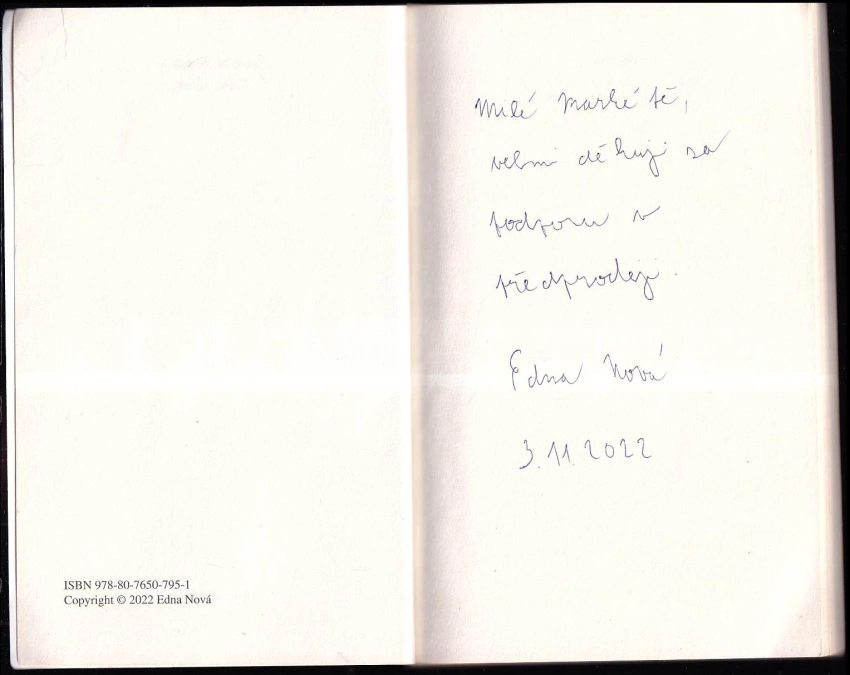 ISBN 978-80-7650-795-1
Copyright © 2022 Edna Nová
Milé Markétě,
velmi děkuji za
podporu v
předprodeji.
Edna Nová
3.11.2022